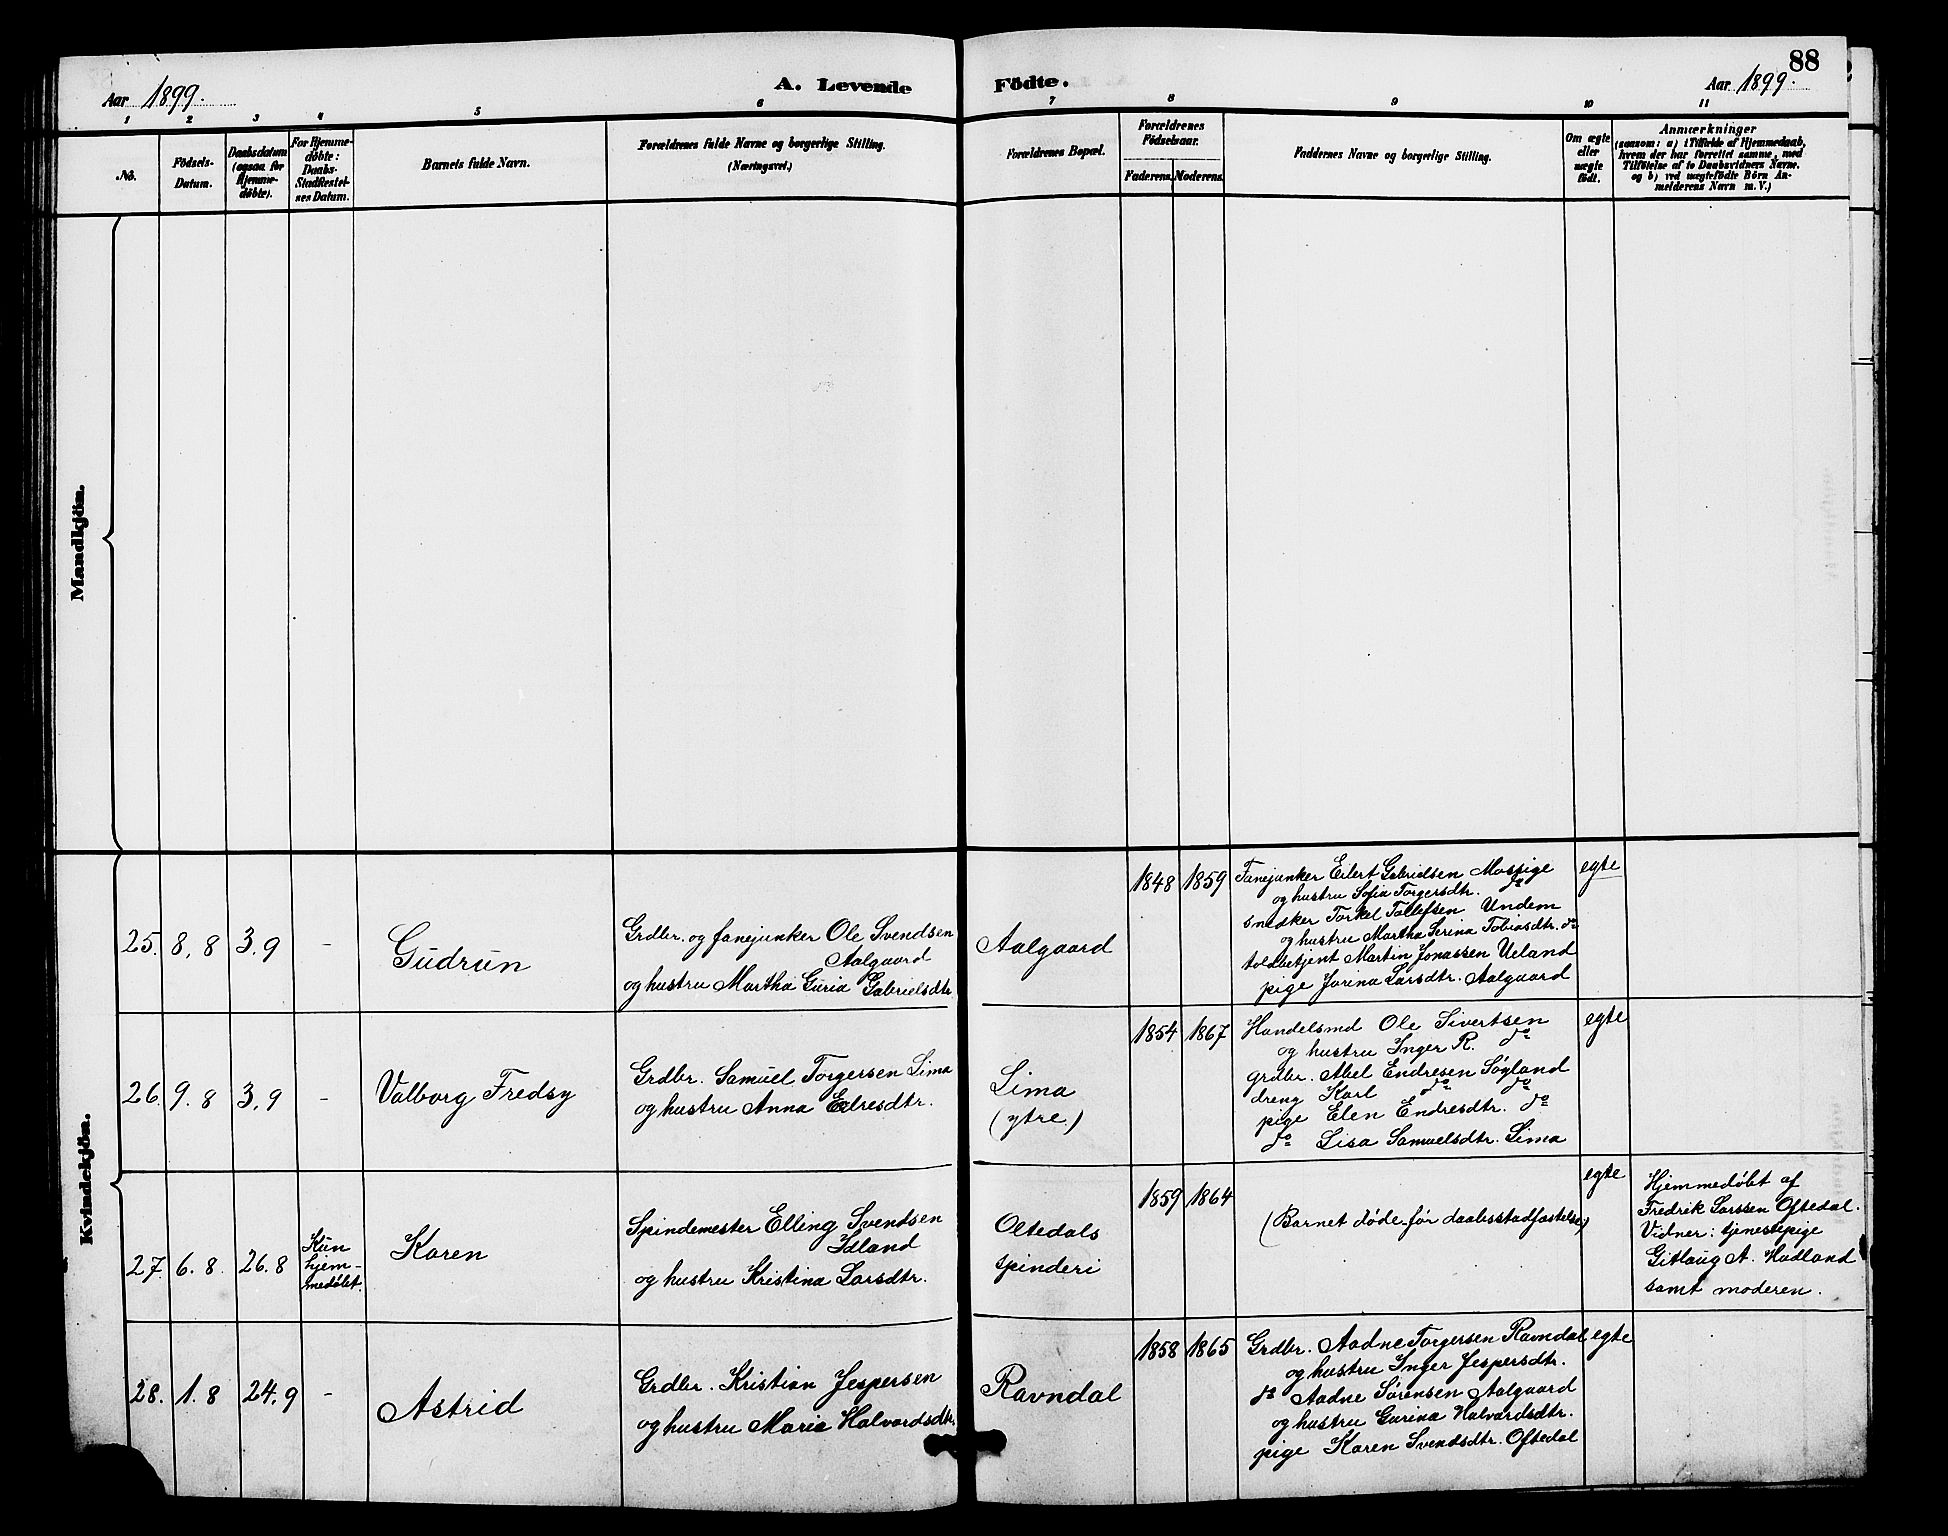 88
Aar 1899.
A. Levende Födte.
Aar 1899.
1 2 3 4 5 6 7 8 9 10 11
No.
Födsels-
Datum.
Daabsdatum
(ogsaa for
Hjemme-
døbte).
For Hjemme-
døbte:
Daabs-
Stadfæstel-
ses Datum.
Barnets fulde Navn.
Forældrenes fulde Navne og borgerlige Stilling.
(Næringsvei.)
Forældrenes Bopæl.
Forældrenes
Födselsaar.
Faderens. Moderens.
Faddernes Navne og borgerlige Stilling.
Om ægte
eller
uægte
født.
Anmærkninger
(saasom: a) i Tilfælde af Hjemmedaab,
hvem der har forrettet samme, med
Tilföielse af to Daabsvidners Navne.
og b) ved uægtefödte Börn An-
melderens Navn m.V.)
Mandkjön.
Kvindekjön.
25. 8,8 3,9 -
Gudrun
Grdbr. og fanejunker Ole Svendsen
Aalgaard
og hustru Martha Guria Gabrielsdtr.
Aalgaard
1848 1859
Fanejunker Eilert Gabrielsen Mossige
og hustru Sofia Torgersdtr. do
snedker Torkel Tollefsen Undem
og hustru Martha Serina Tobiasdtr. do
toldbetjent Martin Jonassen Ueland
pige Jorina Larsdtr. Aalgaard
egte
26. 9.8 3,9 -
Valborg Fredsy
Grdbr. Samuel Torgersen Lima
og hustru Anna Edresdtr.
Lima
(ytre)
1854 1867
Handelsmd Ole Sivertsen
og hustru Inger R. do
grdbr. Abel Endresen Søyland
dreng Karl do do
pige Elen Endresdtr. do
do Lisa Samuelsdtr. Lima
egte
27. 6.8 26.8
Kun
hjem-
medøbt.
Karen
Spindemester Elling Svendsen
Idland
og hustru Kristina Larsdtr.
Oltedals
spinderi
1859 1864
(Barnet døde før daabsstadfæstelse)
egte
Hjemmedøbt af
Fredrik Larssen Oftedal.
Vidner: tjenestepige
Gitlaug A. Hadland
samt moderen.
28. 1.8 24.9 -
Astrid
Grdbr. Kristian Jespersen
og hustru Maria Halvardsdtr.
Ravndal
1858 1865
Grdbr. Aadne Torgersen Ravndal
og hustru Inger Jespersdtr.
do Aadne Sørensen Aalgaard
og hustru Gurina Halvardsdtr.
pige Karen Svendsdtr. Oftedal
egte